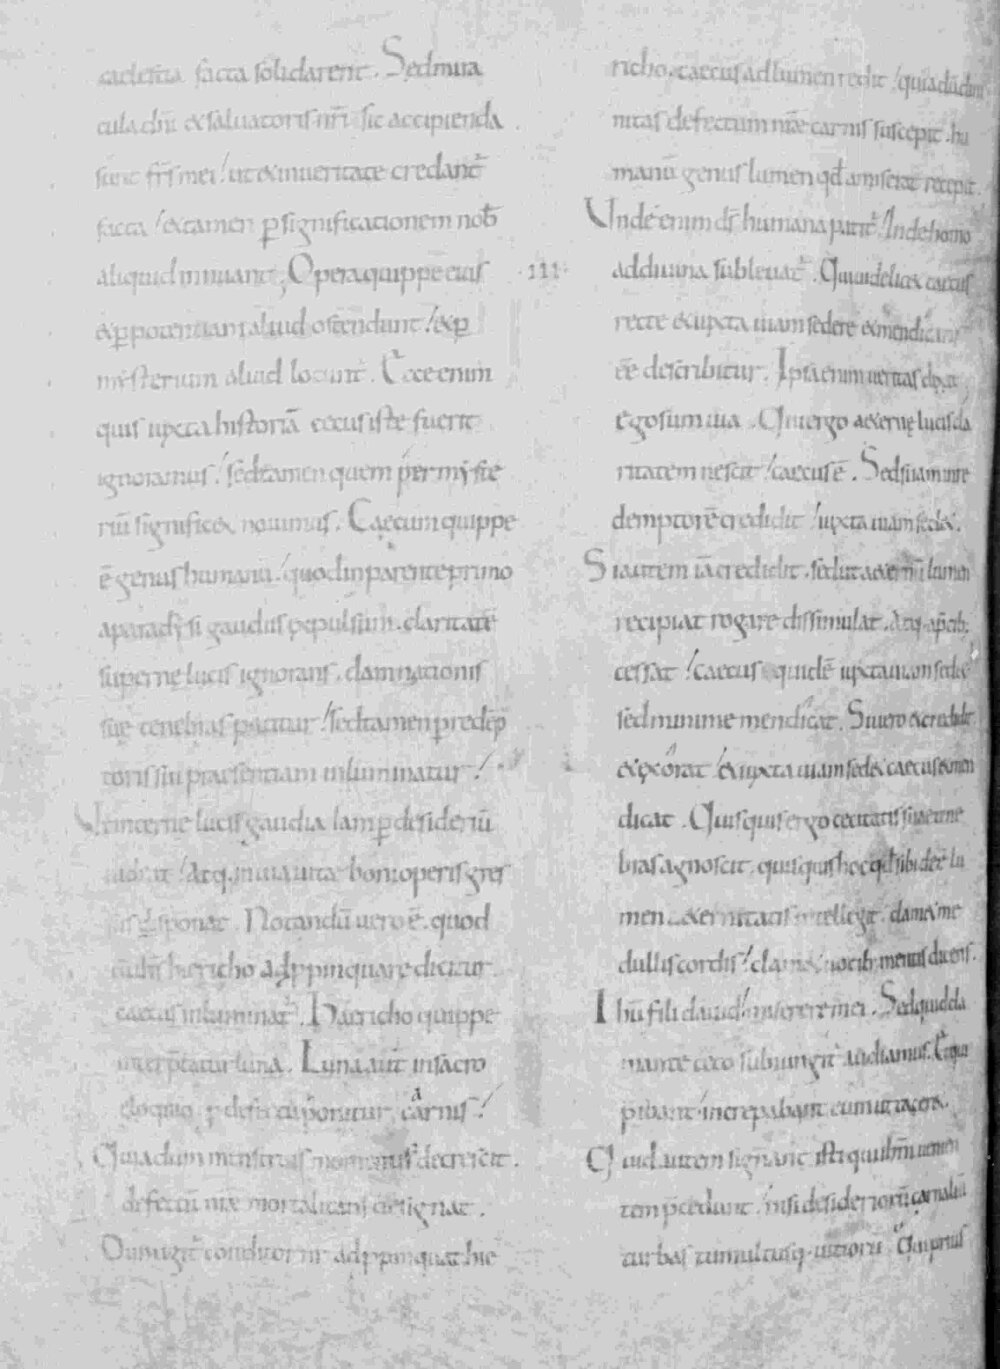 cadesua facta solidarent. Sed mira
cula dn̄i & saluatoris nr̄i sic accipienda
sunt fr̄s mei ut & in ueritate credant̄
facta & tamen ꝑ significationem nob̄
aliquid innuant; Opera quippe eius
·III·
& ꝑ potentiam aliud ostendunt & ꝑ
mysterium aliud locunt̄. Ecce enim
quis iuxta historiā cecus iste fuerit
ignoramus sed tamen quem per myste
riū significet nouimus. Caecum quippe
ē genus humanū quod in parente primo
a paradysi gaudiis expulsum claritatē
supernę lucis ignorans damnationis
suę tenebras patitur sed tamen ꝑ redēp
toris sui praesentiam inluminatur
Ut internę lucis gaudia iam ꝑ desideriū
uideat Atq; in uia uitae boni operis gres
sus disponat. Notandū uero ē quod
cū ih̄s hiericho adpropinquare dicitur
caecus inluminat̄. Hiericho quippe
interp̄tatur luna. Luna aut̄ in sacro
eloquio ꝓ defectu ponitur carnis
Quia dum menstruis momentis decrescit.
defectū nr̄ae mortalitatis designat.
Dum igit̄ conditor nr̄ adpropinquat hie
richo. caecus ad lumen redit quia dū diui
nitas defectum nr̄ae carnis suscepit. hu
manū genus lumen qd̄ amiserat recepit
Unde enim ds̄ humana patit̄ Inde homo
ad diuina subleuat̄. Qui uidelicet caecus
recte & iuxta uiam sedere & mendicans
ēē describitur. Ipsa enim ueritas dicit
ego sum uia. Qui ergo aeternę lucis cla
ritatem nescit caecus ē. Sed si iam in re
demptorē credidit iuxta uiam sedet.
Si autem iā credidit. sed ut aeternū lumen
recipiat rogare dissimulat. Atq; a p̄cib;
cessat caecus quidē iuxta uiam sedet
sed minime mendicat. Si uero & credidit
& exorat & iuxta uiam sedet caecus & men
dicat. Quisquis ergo cecitatis suae tene
bras agnoscit quisquis hoc qd̄ sibi deē lu
men aeternitatis intellegit clamet me
dullis cordis clamet uocib; mentis dicens.
Ih̄u fili dauid miserere mei. Sed quid cla
mante ceco subiungit̄ audiamus. Et qui
p̄ibant increpabant eum ut taceret.
Quid autem signant isti qui ih̄m uenien
tem p̄cedunt nisi desideriorū carnaliū
turbas tumultusq; uitiorū Qui prius